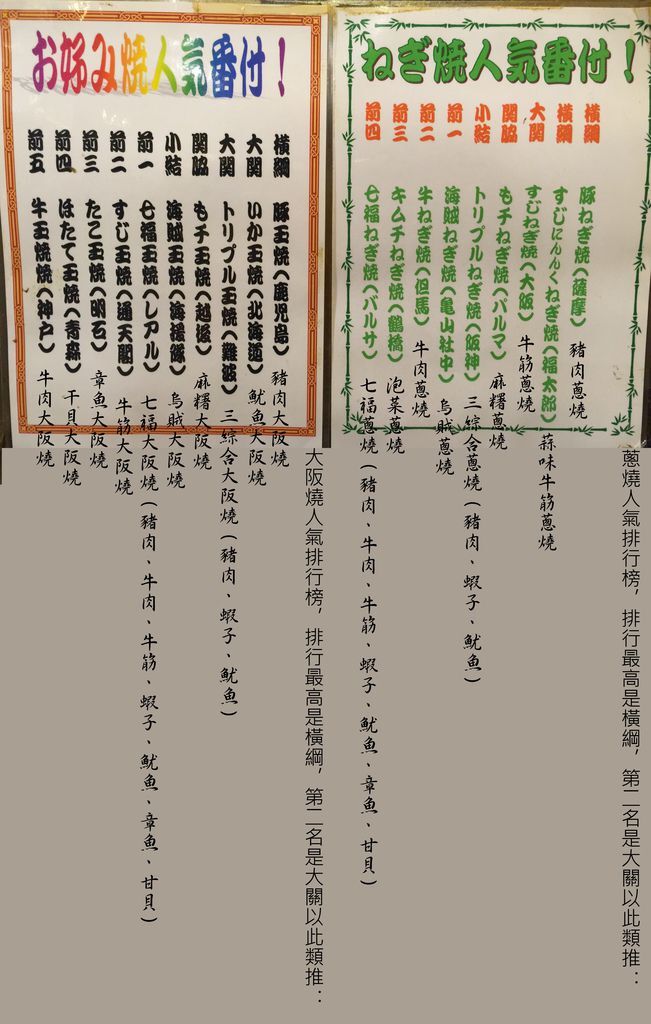 ねぎ焼人気番付！
横綱 豚ねぎ焼(薩摩)
横綱 すじにんにくねぎ焼(福太郎)
大関 すじねぎ焼(大阪)
関脇 もチねぎ焼(パルマ)
小結 トリプルねぎ焼(阪神)
前一 海賊ねぎ焼(亀山社中)
前二 牛ねぎ焼(但馬)
前三 キムチねぎ焼(鶴橋)
前四 七福ねぎ焼(バルサ)
蔥燒人氣排行榜，排行最高是橫綱，第二名是大關以此類推：
豬肉蔥燒
蒜味牛筋蔥燒
牛筋蔥燒
麻糬蔥燒
三綜合蔥燒(豬肉、蝦子、魷魚)
烏賊蔥燒
牛肉蔥燒
泡菜蔥燒
七福蔥燒(豬肉、牛肉、牛筋、蝦子、魷魚、章魚、甘貝)
お好み焼人気番付！
横綱 豚玉焼(鹿児島)
大関 いか玉焼(北海道)
大関 トリプル玉焼(難波)
関脇 もチ玉焼(越後)
小結 海賊玉焼(海援隊)
前一 七福玉焼(レアル)
前二 すじ玉焼(通天閣)
前三 たこ玉焼(明石)
前四 ほたて玉焼(青森)
前五 牛玉焼(神戸)
大阪燒人氣排行榜，排行最高是橫綱，第二名是大關以此類推：
豬肉大阪燒
魷魚大阪燒
三綜合大阪燒(豬肉、蝦子、魷魚)
麻糬大阪燒
烏賊大阪燒
七福大阪燒(豬肉、牛肉、牛筋、蝦子、魷魚、章魚、甘貝)
牛筋大阪燒
章魚大阪燒
干貝大阪燒
牛肉大阪燒